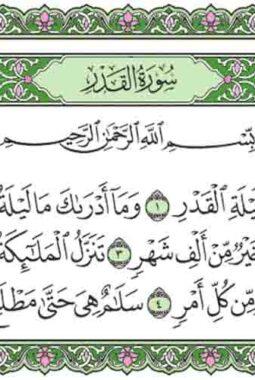 سُورَةُ الْقَدْرِ
بِسْمِ اللَّهِ الرَّحْمَٰنِ الرَّحِيمِ
لَةِ الْقَدْرِ ١ وَمَا أَدْرَىٰكَ مَا لَيْلَةُ
خَيْرٌ مِّنْ أَلْفِ شَهْرٍ ٣ تَنَزَّلُ الْمَلَٰٓئِكَةُ
مِّن كُلِّ أَمْرٍ ٤ سَلَٰمٌ هِيَ حَتَّىٰ مَطْلَعِ